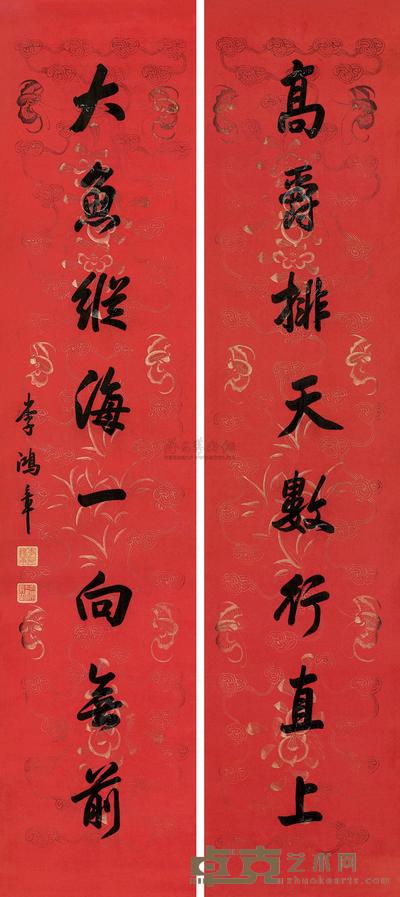 高爵排天數行直上
大魚縱海一向無前
李鴻章
卓克艺术网
zhuokearts.com